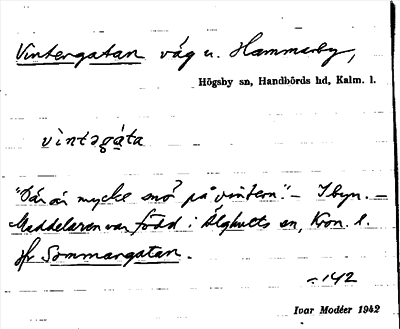 Vintergatan väg u. Hammarby,
Högsby sn, Handbörds hd, Kalm. l.
vìntəgáta
"Där är mycke snö på vintern." – I byn. –
Meddelaren var född i Älghults sn, Kron. l.
Jfr Sommargatan.
– 142
Ivar Modéer 1942